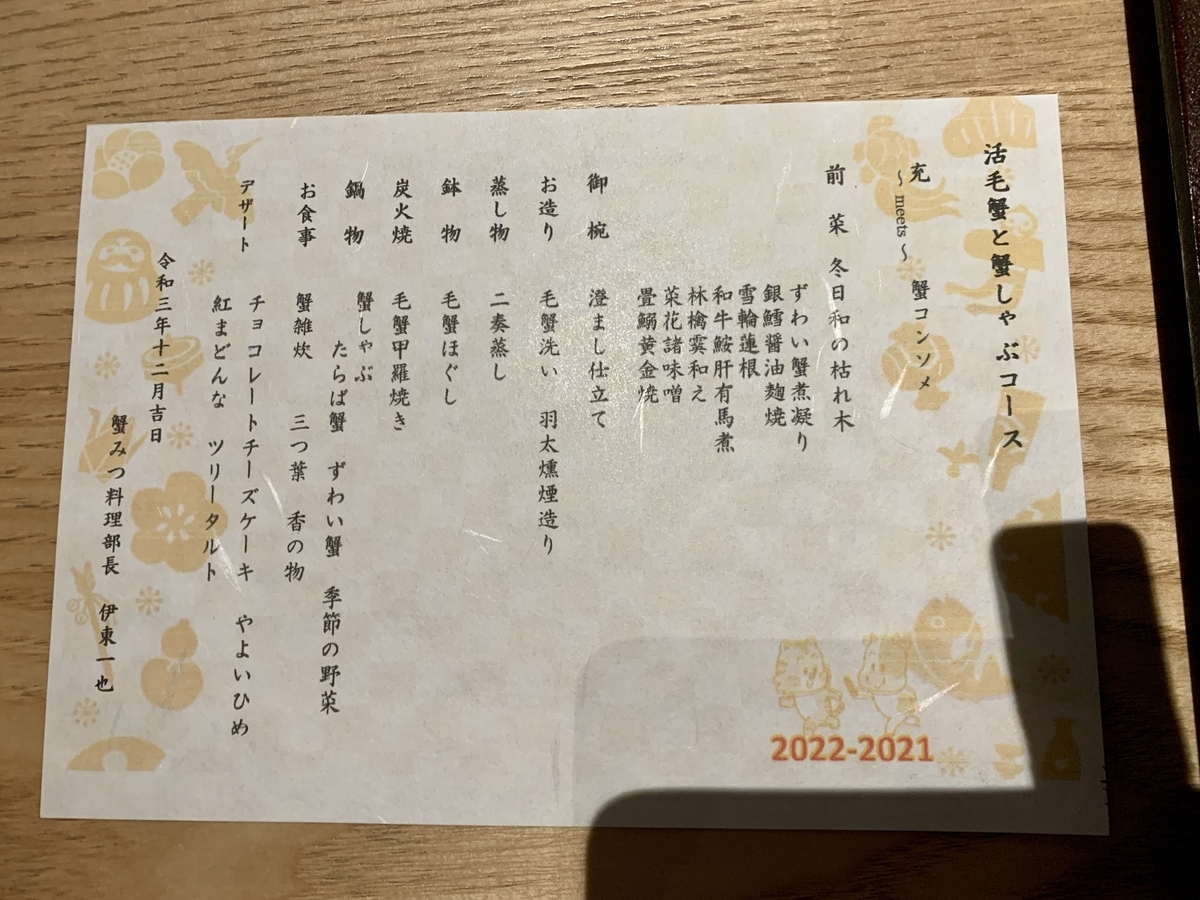 活毛蟹と蟹しゃぶコース
充 蟹コンソメ
~ meets ~
前 菜 冬日和の枯れ木
ずわい蟹煮凝り
銀鱈醤油麹焼
雪輪蓮根
和牛鮟肝有馬煮
林檎霙和え
菜花諸味噌
畳鰯黄金焼
御 椀 澄まし仕立て
お造り 毛蟹洗い 羽太燻煙造り
蒸し物 二奏蒸し
鉢 物 毛蟹ほぐし
炭火焼 毛蟹甲羅焼き
鍋 物 蟹しゃぶ
たらば蟹 ずわい蟹 季節の野菜
お食事 蟹雑炊 三つ葉 香の物
デザート チョコレートチーズケーキ やよいひめ
紅まどんな ツリータルト
令和三年十二月吉日
蟹みつ料理部長 伊東一也
2022-2021